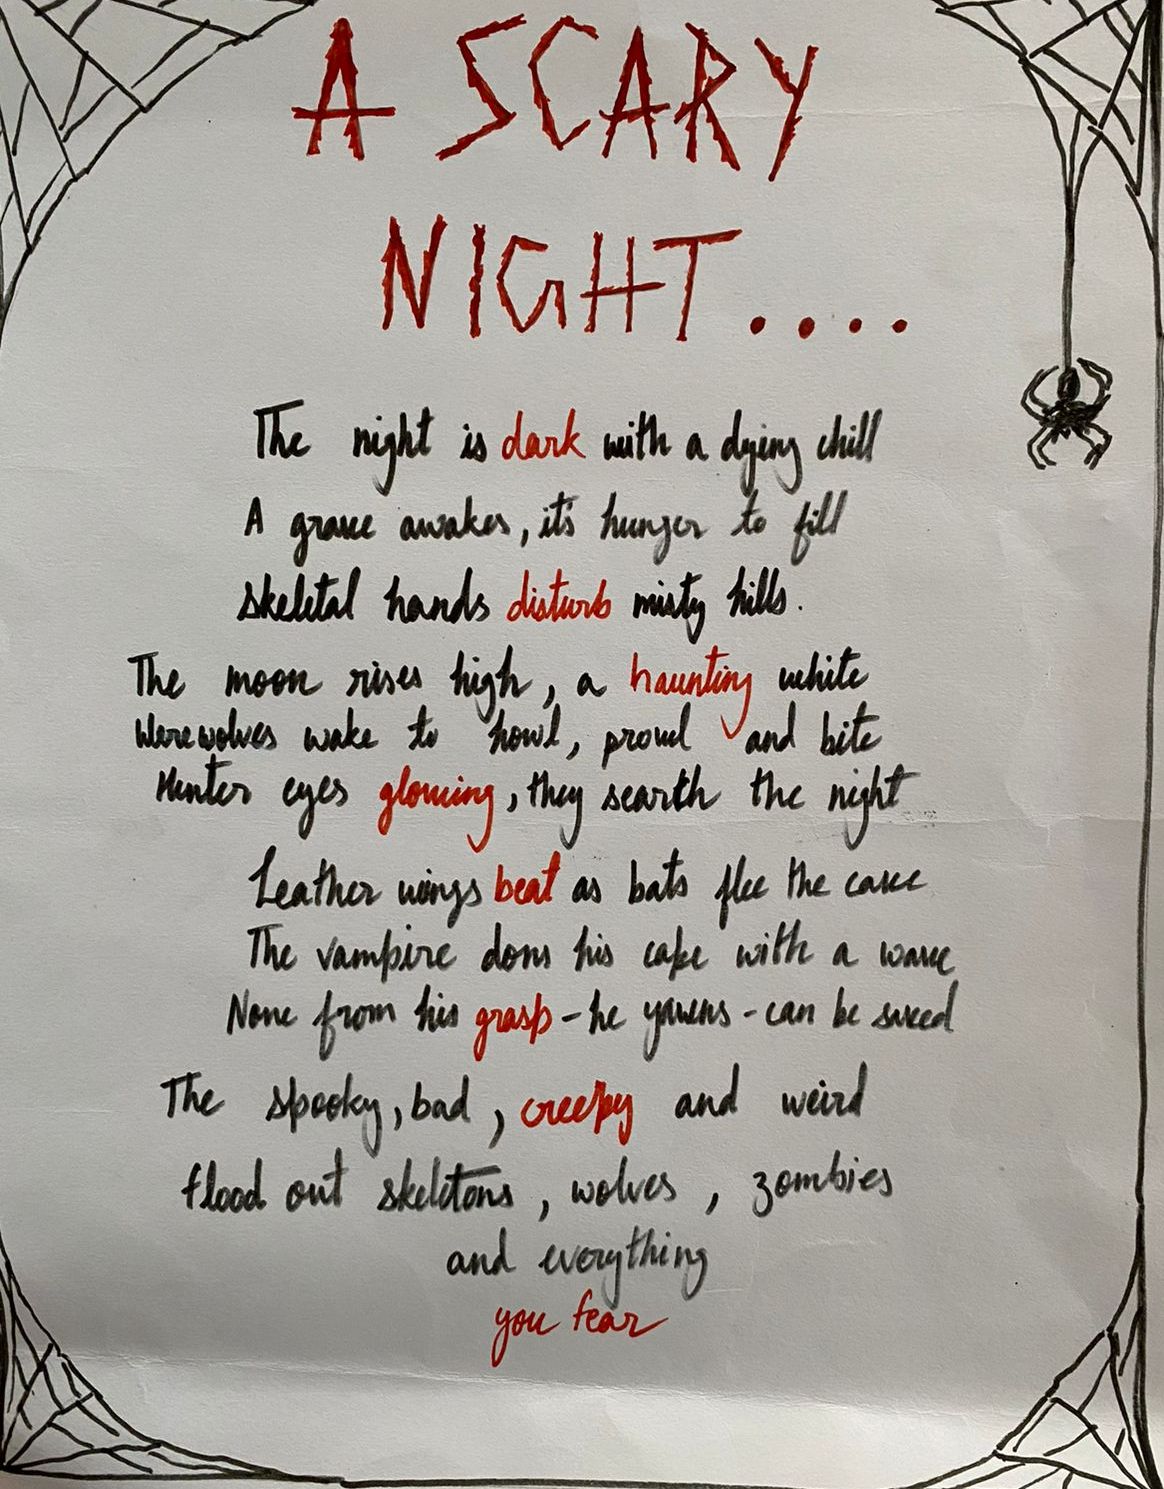 A SCARY
NIGHT....
The night is dark with a dying chill
A grave awakes, it's hunger to fill
Skeletal hands disturb misty hills.
The moon rises high, a haunting white
Werewolves wake to howl, prowl and bite
Hunter eyes glowing, they search the night
Leather wings beat as bats flee the cave
The vampire dons his cape with a wave
None from his grasp - he yawns - can be saved
The spooky, bad, creepy and weird
flood out skeletons, wolves, zombies
and everything
you fear